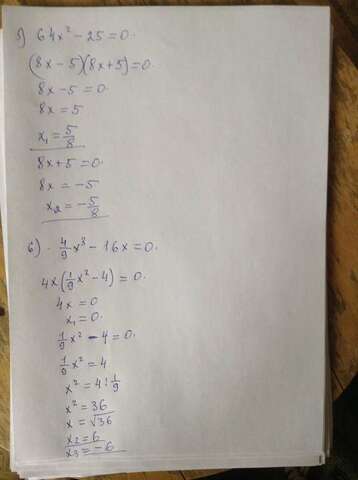 5) 64x² - 25 = 0.
(8x - 5)(8x + 5) = 0.
8x - 5 = 0.
8x = 5
x₁ = 5/8
8x + 5 = 0.
8x = -5
x₂ = -5/8
6) 4/9 x³ - 16x = 0.
4x(1/9 x² - 4) = 0.
4x = 0
x₁ = 0.
1/9 x² - 4 = 0.
1/9 x² = 4
x² = 4 : 1/9
x² = 36
x = √36
x₂ = 6
x₃ = -6